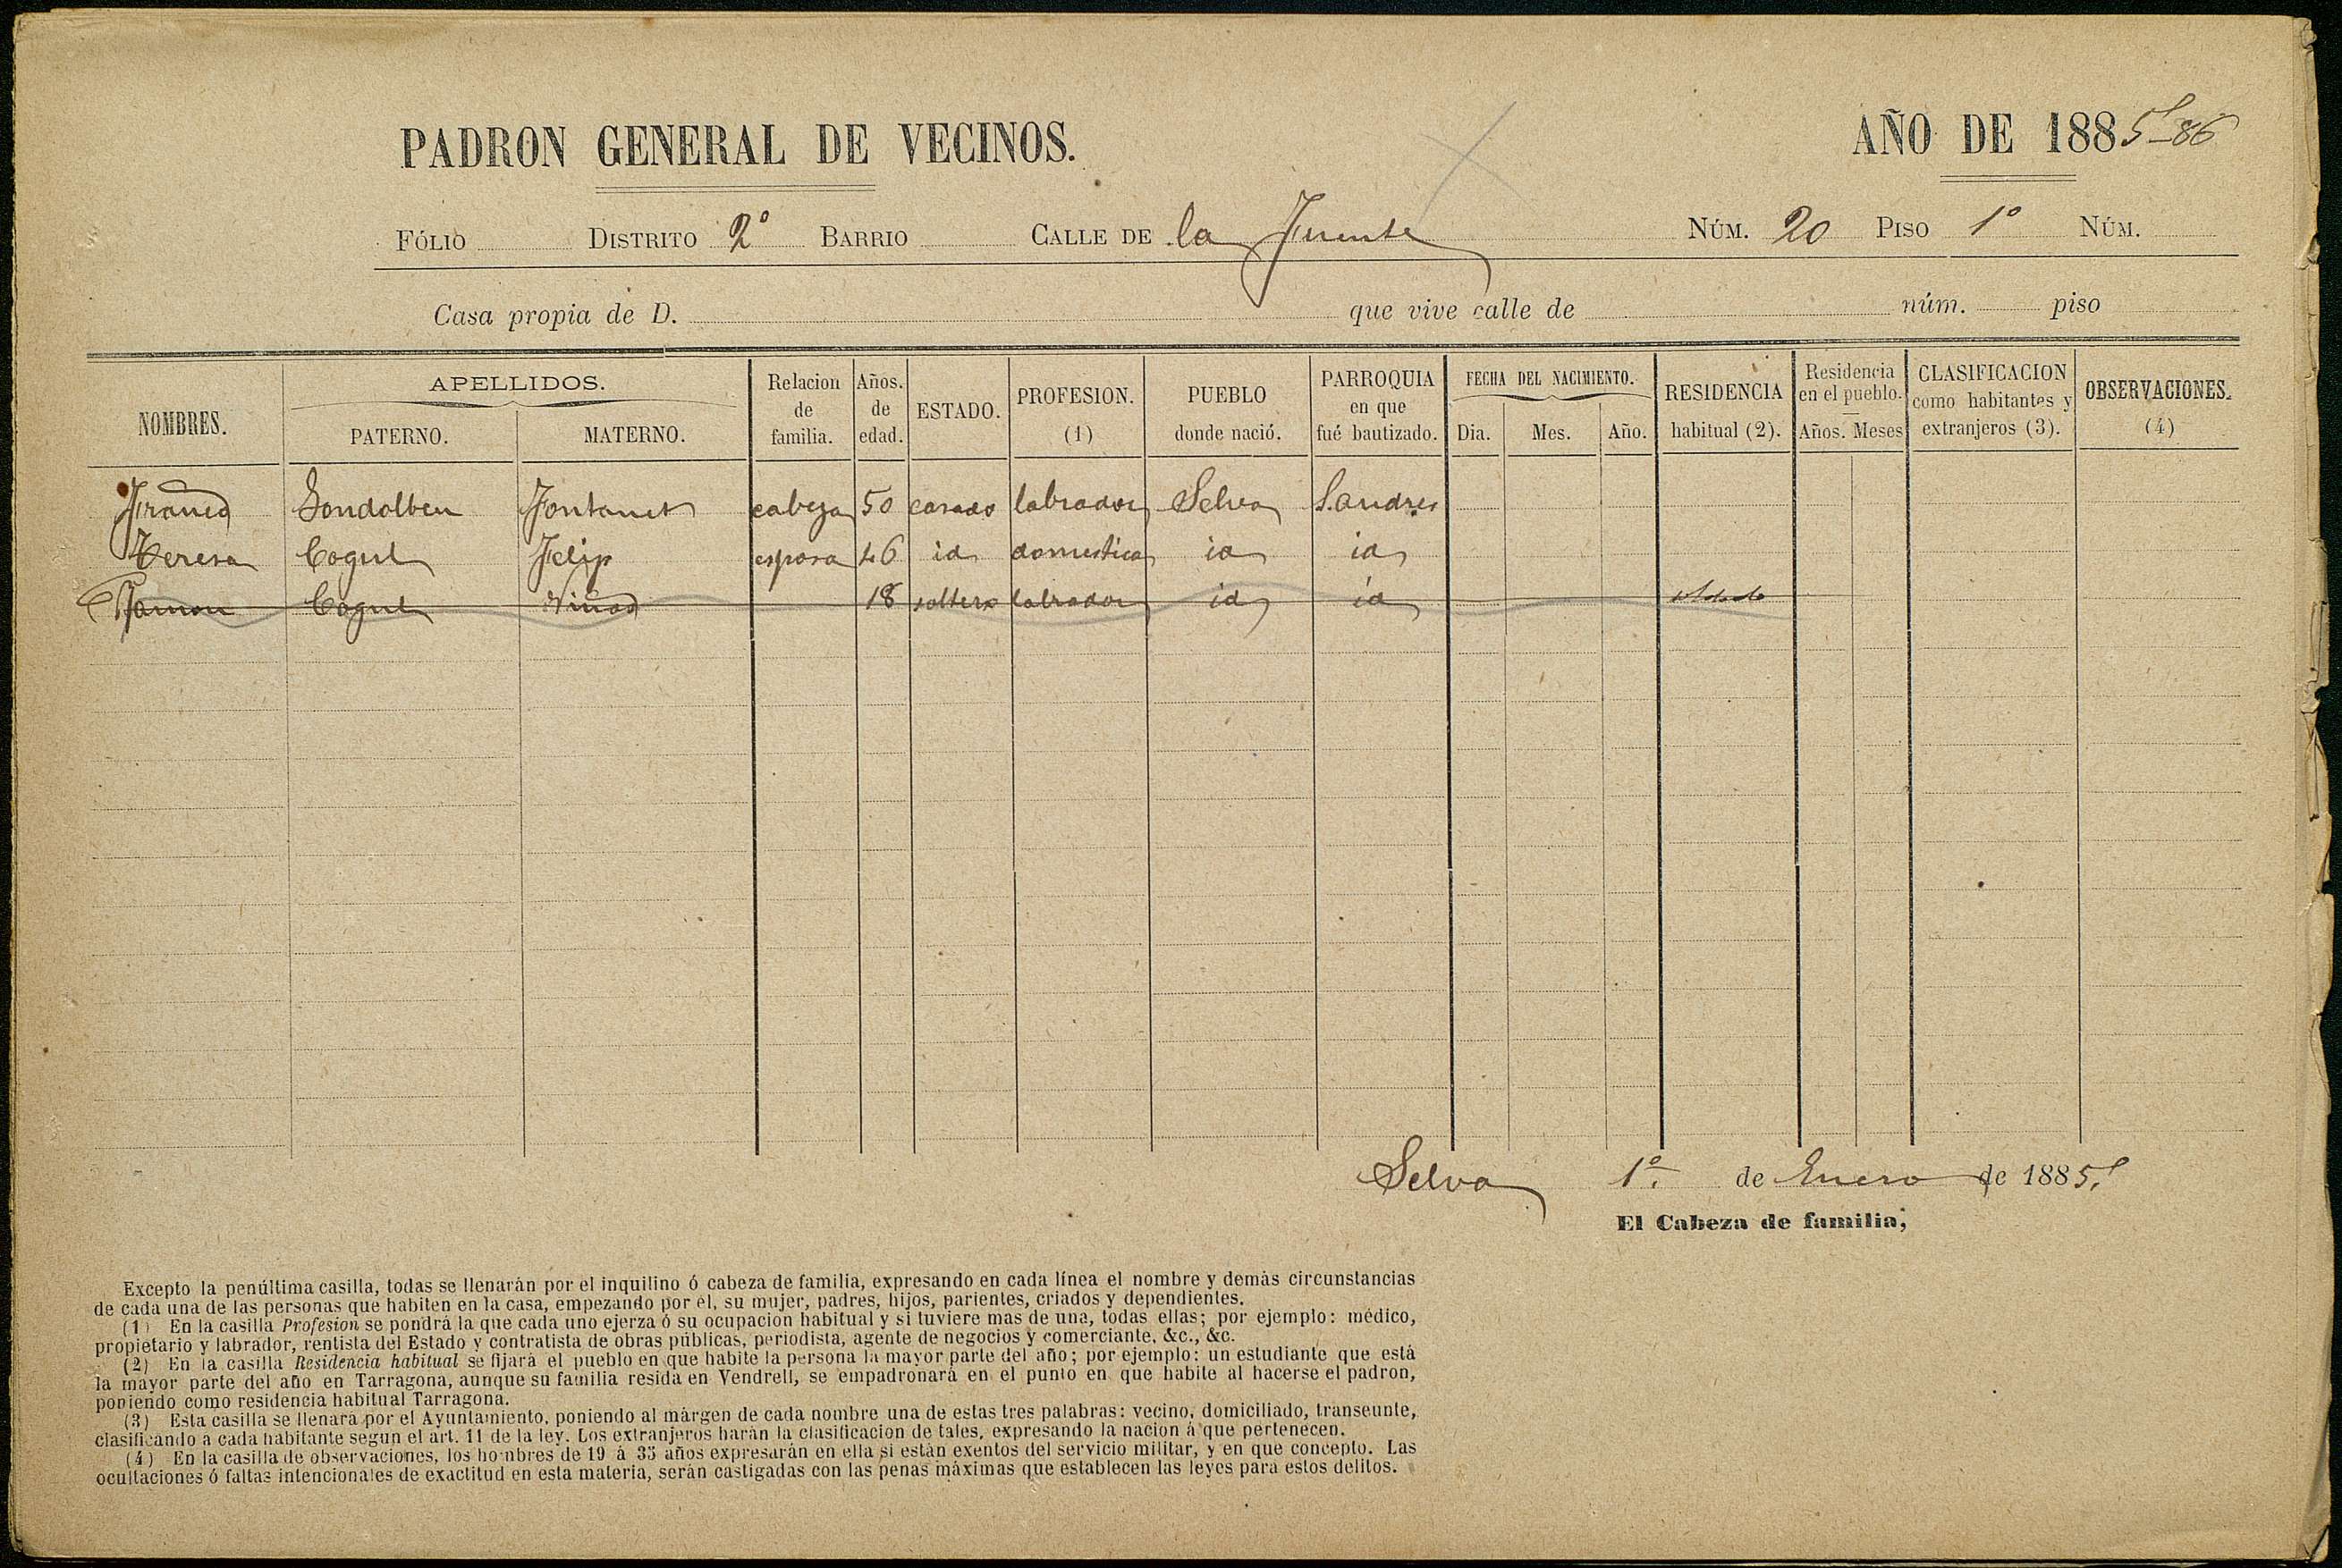 PADRON GENERAL DE VECINOS. AÑO DE 1885-86
FÓLIO DISTRITO 2º BARRIO CALLE DE la Fuente NÚM. 20 PISO 1º NÚM.
Casa propia de D. que vive calle de núm. piso
NOMBRES. APELLIDOS. PATERNO. MATERNO. Relacion de familia. Años. de edad. ESTADO. PROFESION. (1) PUEBLO donde nació. PARROQUIA en que fué bautizado. FECHA DEL NACIMIENTO. Dia. Mes. Año. RESIDENCIA habitual (2). Residencia en el pueblo. Años. Meses CLASIFICACION como habitantes y extranjeros (3). OBSERVACIONES. (4)
Franco Gondolbeu Fontanet cabeza 50 casado labrador Selva S. Andres
Teresa Cogul Felip esposa 46 id domestica id id
Ramon Cogul 18 soltero labrador id id
Selva 1º. de Enero de 1885.
El Cabeza de familia,
Excepto la penúltima casilla, todas se llenarán por el inquilino ó cabeza de familia, expresando en cada línea el nombre y demás circunstancias
de cada una de las personas que habiten en la casa, empezando por él, su mujer, padres, hijos, parientes, criados y dependientes.
(1) En la casilla Profesion se pondrá la que cada uno ejerza ó su ocupacion habitual y si tuviere mas de una, todas ellas; por ejemplo: médico,
propietario y labrador, rentista del Estado y contratista de obras públicas, periodista, agente de negocios y comerciante, &c., &c.
(2) En la casilla Residencia habitual se fijará el pueblo en que habite la persona la mayor parte del año; por ejemplo: un estudiante que está
la mayor parte del año en Tarragona, aunque su familia resida en Vendrell, se empadronará en el punto en que habite al hacerse el padron,
poniendo como residencia habitual Tarragona.
(3) Esta casilla se llenara por el Ayuntamiento, poniendo al márgen de cada nombre una de estas tres palabras: vecino, domiciliado, transeunte,
clasificando a cada habitante segun el art. 11 de la ley. Los extranjeros harán la clasificacion de tales, expresando la nacion á que pertenecen.
(4) En la casilla de observaciones, los hombres de 19 á 35 años expresarán en ella si están exentos del servicio militar, y en que concepto. Las
ocultaciones ó faltas intencionales de exactitud en esta materia, serán castigadas con las penas máximas que establecen las leyes para estos delitos.